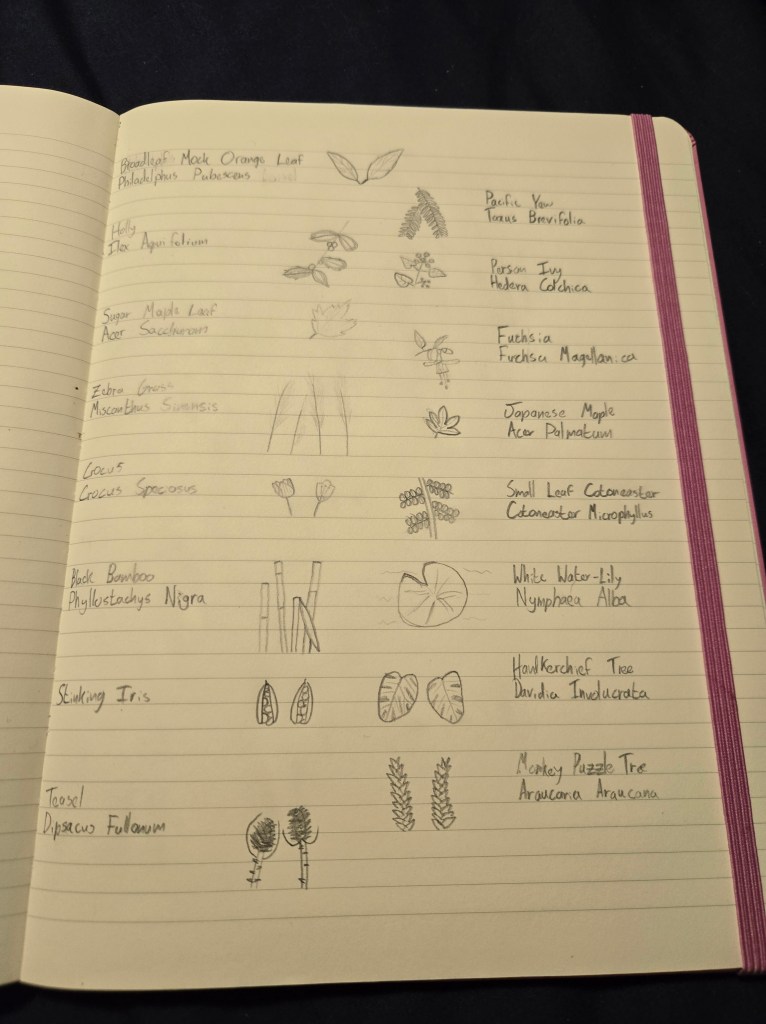 Broadleaf Mock Orange Leaf
Philadelphus Pubescens
Holly
Ilex Aquifolium
Sugar Maple Leaf
Acer Saccharum
Zebra Grass
Miscanthus Sinensis
Crocus
Crocus Speciosus
Black Bamboo
Phyllostachys Nigra
Stinking Iris
Teasel
Dipsacus Fullonum
Pacific Yew
Taxus Brevifolia
Persian Ivy
Hedera Colchica
Fuchsia
Fuchsia Magellanica
Japanese Maple
Acer Palmatum
Small Leaf Cotoneaster
Cotoneaster Microphyllus
White Water-Lily
Nymphaea Alba
Handkerchief Tree
Davidia Involucrata
Monkey Puzzle Tree
Araucaria Araucana